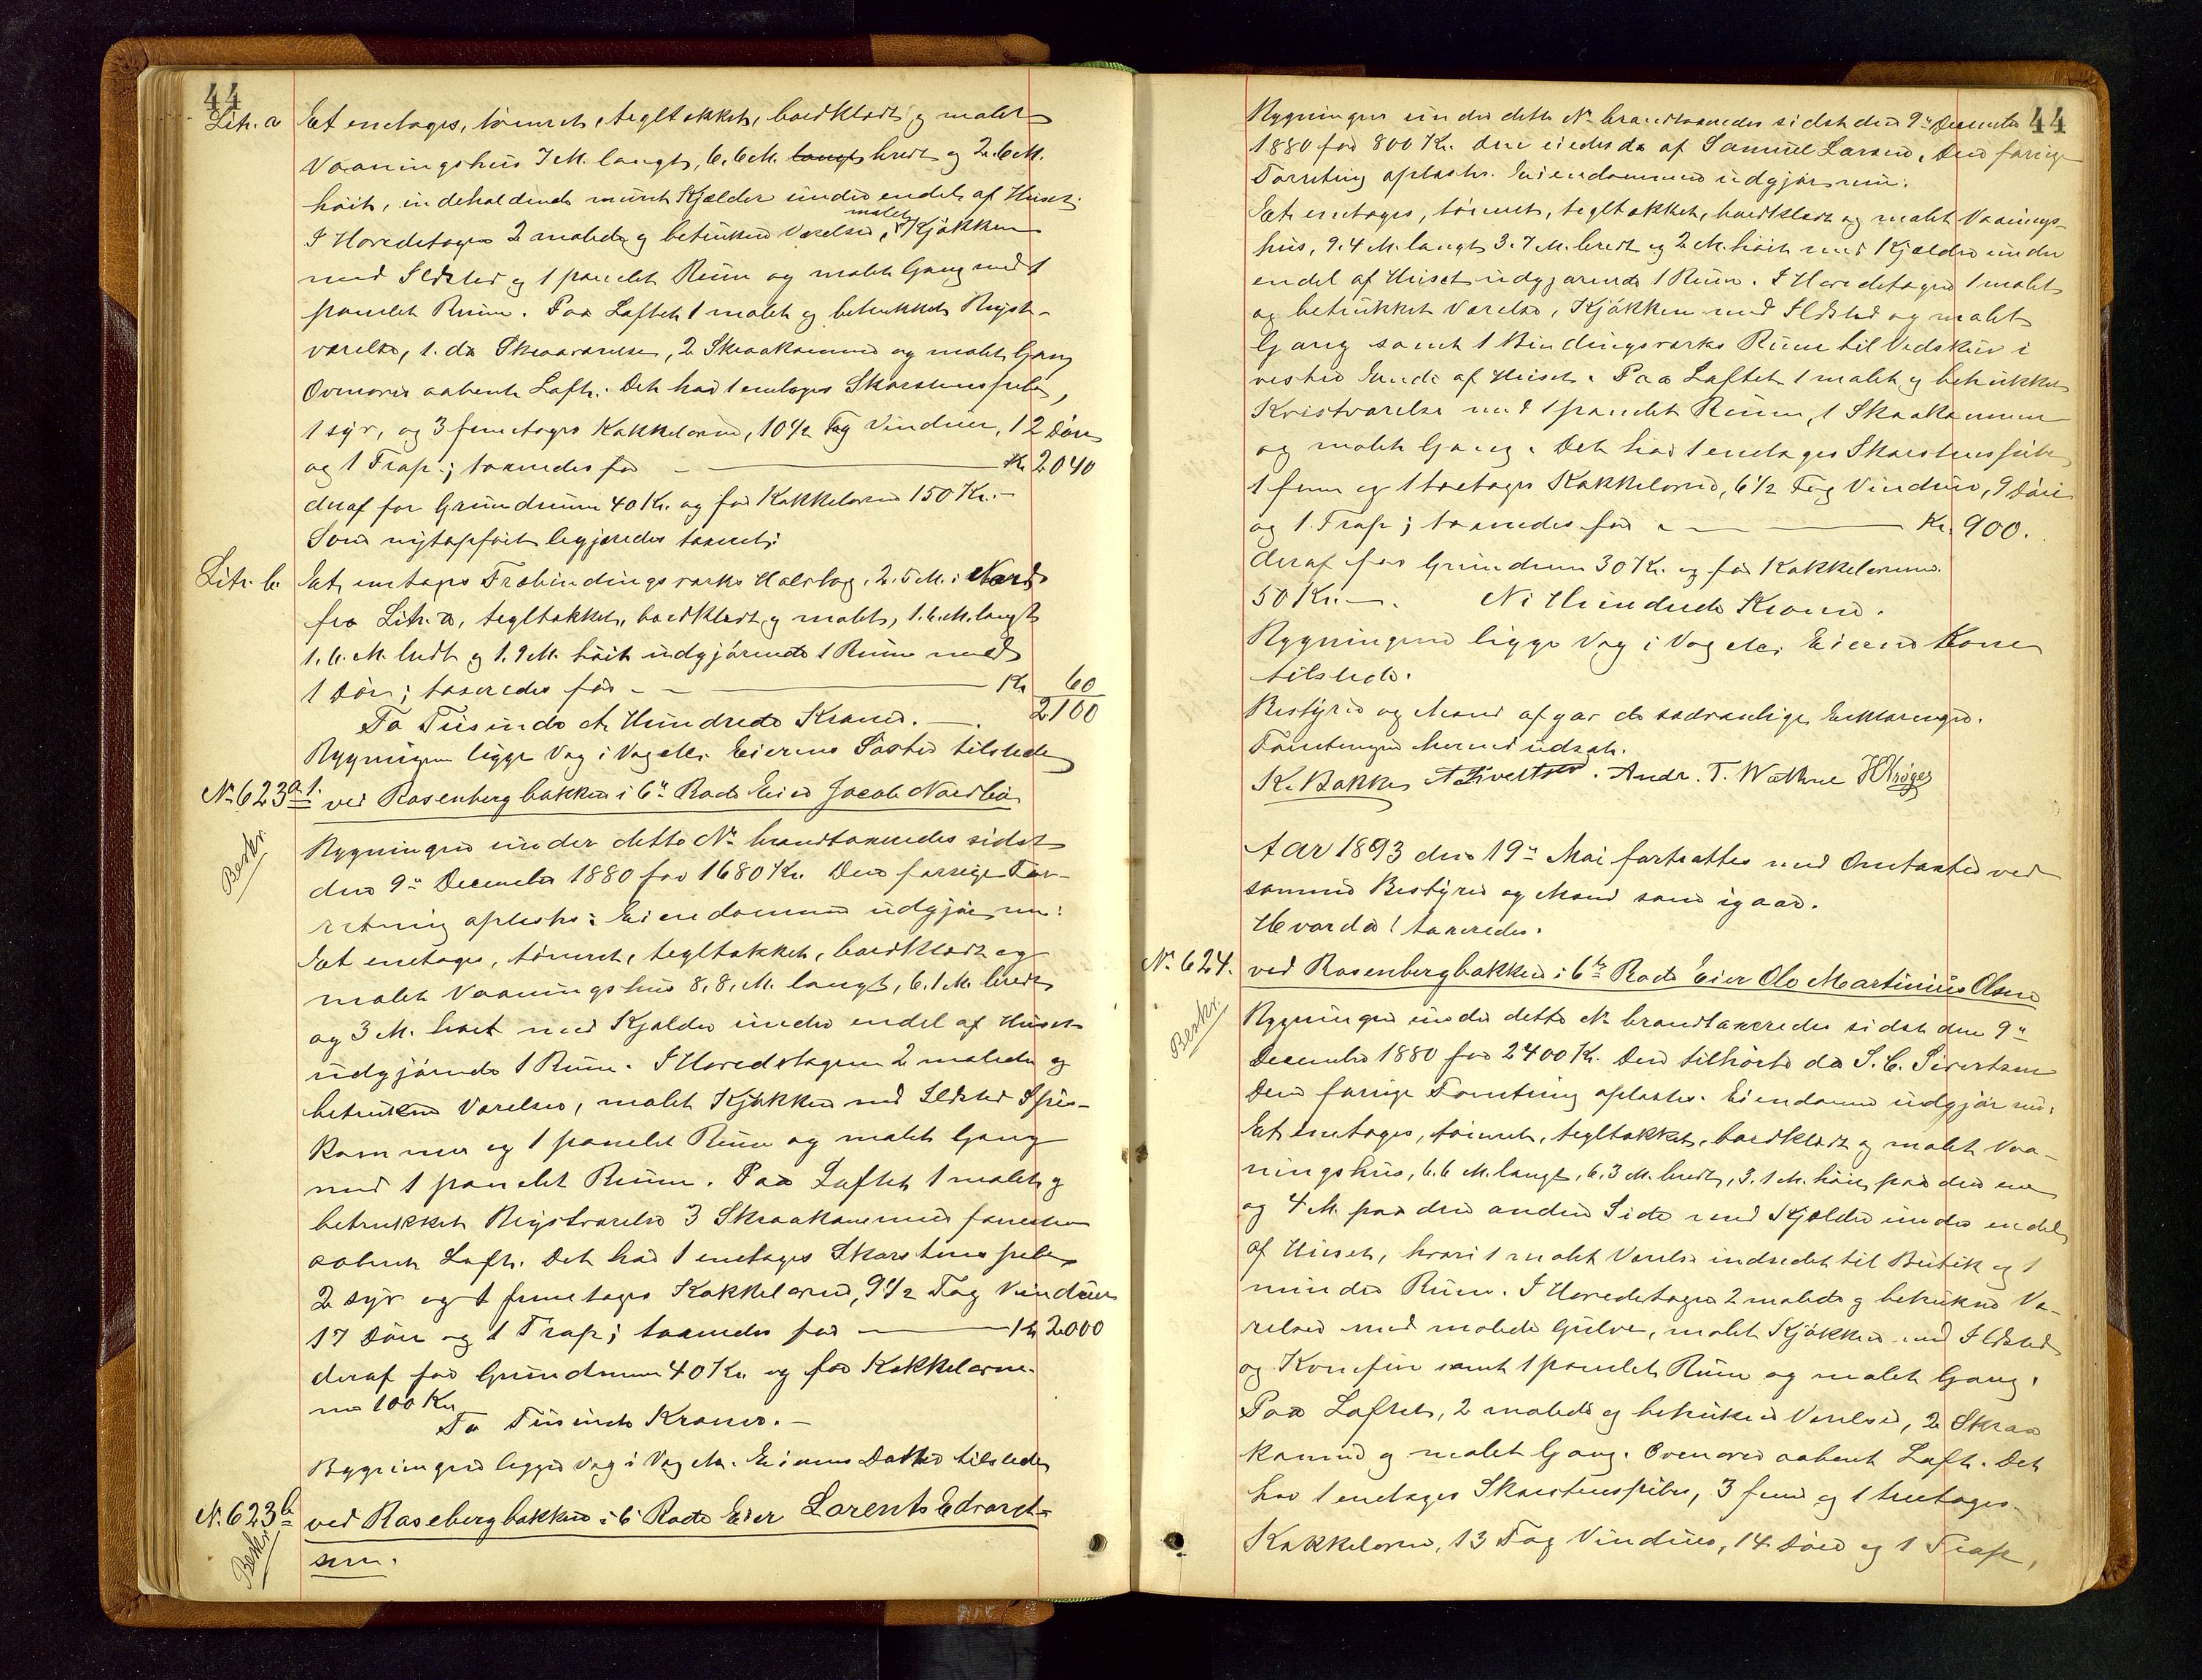 44
Litr. a Et enetages, tömret, tegltækket, bordklædt og malet
Vaaningshus 7 M. langt, 6.6 M. langt bredt og 2.6 M.
höit, indeholdende muret Kjælder under endel af Huset.
malet
I Hovedetagen 2 malede og betrukne Værelser, Kjökken
med Ildsted og 1 panelet Rum og malet Gang med 1
panelet Rum. Paa Loftet 1 malet og betrukket Kvist-
værelse, 1 do Skraaværelse, 2 Skraakammere og malet Gang
Ovenover aabent Loft. Det har 1 enetages Skorstenspibe,
1 syv, og 3 fem etages Kakkelovne, 10 1/2 Fag Vinduer, 12 Döre
og 1 Trap.; taxeredes for — Kr 2040
deraf for Grundmur 40 Kr. og for Kakkelovne 150 Kr.—
Som nyt opfört begjæredes taxeret:
Litr. b. Et, enetages Træbindingsværks Halvtag, 2.5 M. i Nord
fra Litr. a, tegltækket, bordklædt og malet, 1.6. M. langt
1.6. M. bredt og 1.9 M. höit udgjörende 1 Rum med
1 Dör; taxeredes for — Kr 60
To Tusinde et Hundrede Kroner. —. 2100
Bygningen ligger Væg i Væg etc. Eierens Söster tilstede
No 623 a.1. ved Rosenbergbakken i 6te Rode Eier Jacob Nordbö
Beskr.
Bygningen under dette No brandtaxeredes sidst
den 9de December 1880 for 1680 Kr. Den forrige For-
retning oplæstes: Eiendommen udgjör nu:
Et enetages, tömret, tegltækket, bordklædt og
malet Vaaningshus 8.8. M. langt, 6.1 M. bredt
og 3 M. höit med Kjælder under endel af Huset
udgjörende 1 Rum. I Hovedetagen 2 malede og
betrukne Værelser, malet Kjökken med Ildsted Spis-
kammer og 1 panelet Rum og malet Gang
med 1 panelet Rum. Paa Loftet 1 malet og
betrukket Kvistværelse 3 Skraakammere foruden
aabent Loft. Det har 1 enetages Skorstenspibe,
2 syv og 1 femetages Kakkelovne, 9 1/2 Fag Vinduer
17 Döre og 1 Trap; taxeredes for — Kr 2000
deraf for Grundmur 40 Kr. og for Kakkelovne-
ne 100 Kr.
To Tusinde Kroner. —
Bygningen ligger Væg i Væg etc. Eierens Datter tilstede
No. 623 b ved Rosebergbakken i 6 Rode Eier Lorents Edvard-
Beskr. sen.
44
Bygningen under dette No brandtaxeredes sidst den 9de December
1880 for 800 Kr. den eiedes da af Samuel Larsen. Den forrige
Forretning oplæstes. Eiendommen udgjör nu:
Et, enetages, tömret, tegltækket, bordklædt og malet Vaanings-
hus, 9.4 M. langt 3.7 M. bredt og 2 M. höit med Kjælder under
endel af Huset udgjörende 1 Rum. I Hovedetagen 1 malet
og betrukket Værelse, Kjökken med Ildsted og malet
Gang samt 1 Bindingsværks Rum til Vedskur i
vestre Ende af Huset. Paa Loftet 1 malet og betrukket
Kvistværelse med 1 panelet Rum, 1 Skraakammer
og malet Gang. Det har 1 enetages Skorstenspibe,
1 fem og 1 toetages Kakkelovne, 6 1/2 Fag Vinduer, 9 Döre
og 1 Trap; taxeredes for — Kr. 900.
deraf for Grundmur 30 Kr. og for Kakkelovnene
50 Kr. —. Ni Hundrede Kroner.
Bygningerne ligger Væg i Væg etc. Eierens Kone
tilstede.
Bestyrer og Mænd afgav de sædvanlige Erklæringer.
Forretningen herved udsat.
K. Bakke A Sivertsen. Andr. T. Wathne H Kröger
Aar 1893 den 19de Mai fortsattes med Omtaxter ved
samme Bestyrer og Mænd som igaar.
Hvorda! taxeredes.
No. 624. ved Rosenbergbakken i 6te Rode Eier Ole Martinius Olsen
Beskr.
Bygningen under dette No brandtaxeredes sidst den 9de
December 1880 for 2400 Kr. Den tilhörte da S. C. Sivertsen
Den forrige Forretning oplæstes. Eiendommen udgjör nu:
Et, enetages, tömret, tegltækket, bordklædt og malet Vaa-
ningshus, 6.6 M. langt, 6.3 M. bredt, 3.1 M. höit paa den ene
og 4 M. paa den anden Side med Kjælder under endel
af Huset, hvori 1 malet Værelse indredet til Butik og 1
mindre Rum. I Hovedetagen 2 malede og betrukne Væ-
relser med malede Gulve, malet Kjökken med Ildsted
og Komfur samt 1 panelet Rum og malet Gang.
Paa Loftet, 2 malede og betrukne Værelser, 2 Skraa
kamre og malet Gang. Ovenover aabent Loft. Det
har 1 enetages Skorstenspibe, 3 fem og 1 treetages
Kakkelovne, 13 Fag Vinduer, 14 Döre og 1 Trap,